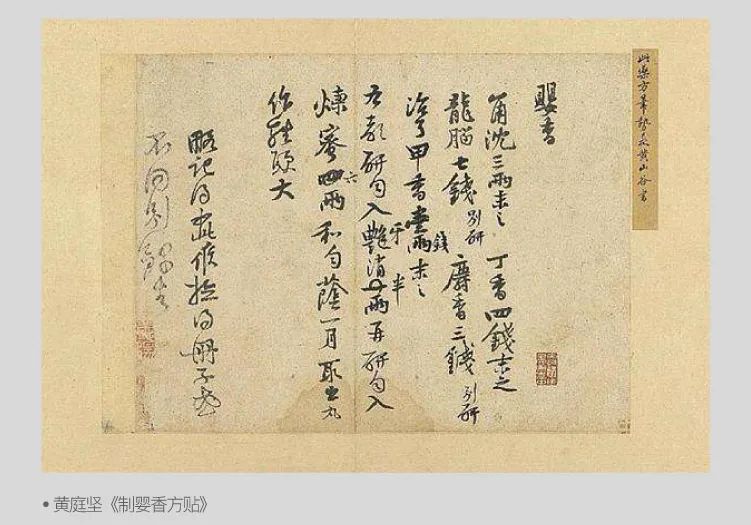 此藥方筆勢黃山谷書
嬰香
角沈三兩末之 丁香四錢末之
龍腦七錢別研 麝香三錢別研
治了甲香壹兩錢末之
右都研勻入艷消半兩再研勻入
煉蜜四六兩和勻蔭一月取出丸
作雞頭大
略記得如此候檢得冊子或
不同別錄去
• 黄庭坚《制婴香方贴》